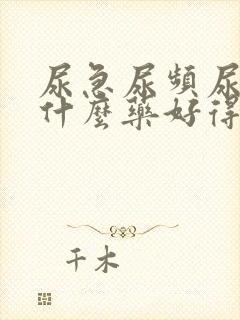 尿急尿頻尿
什麼藥好得
千木